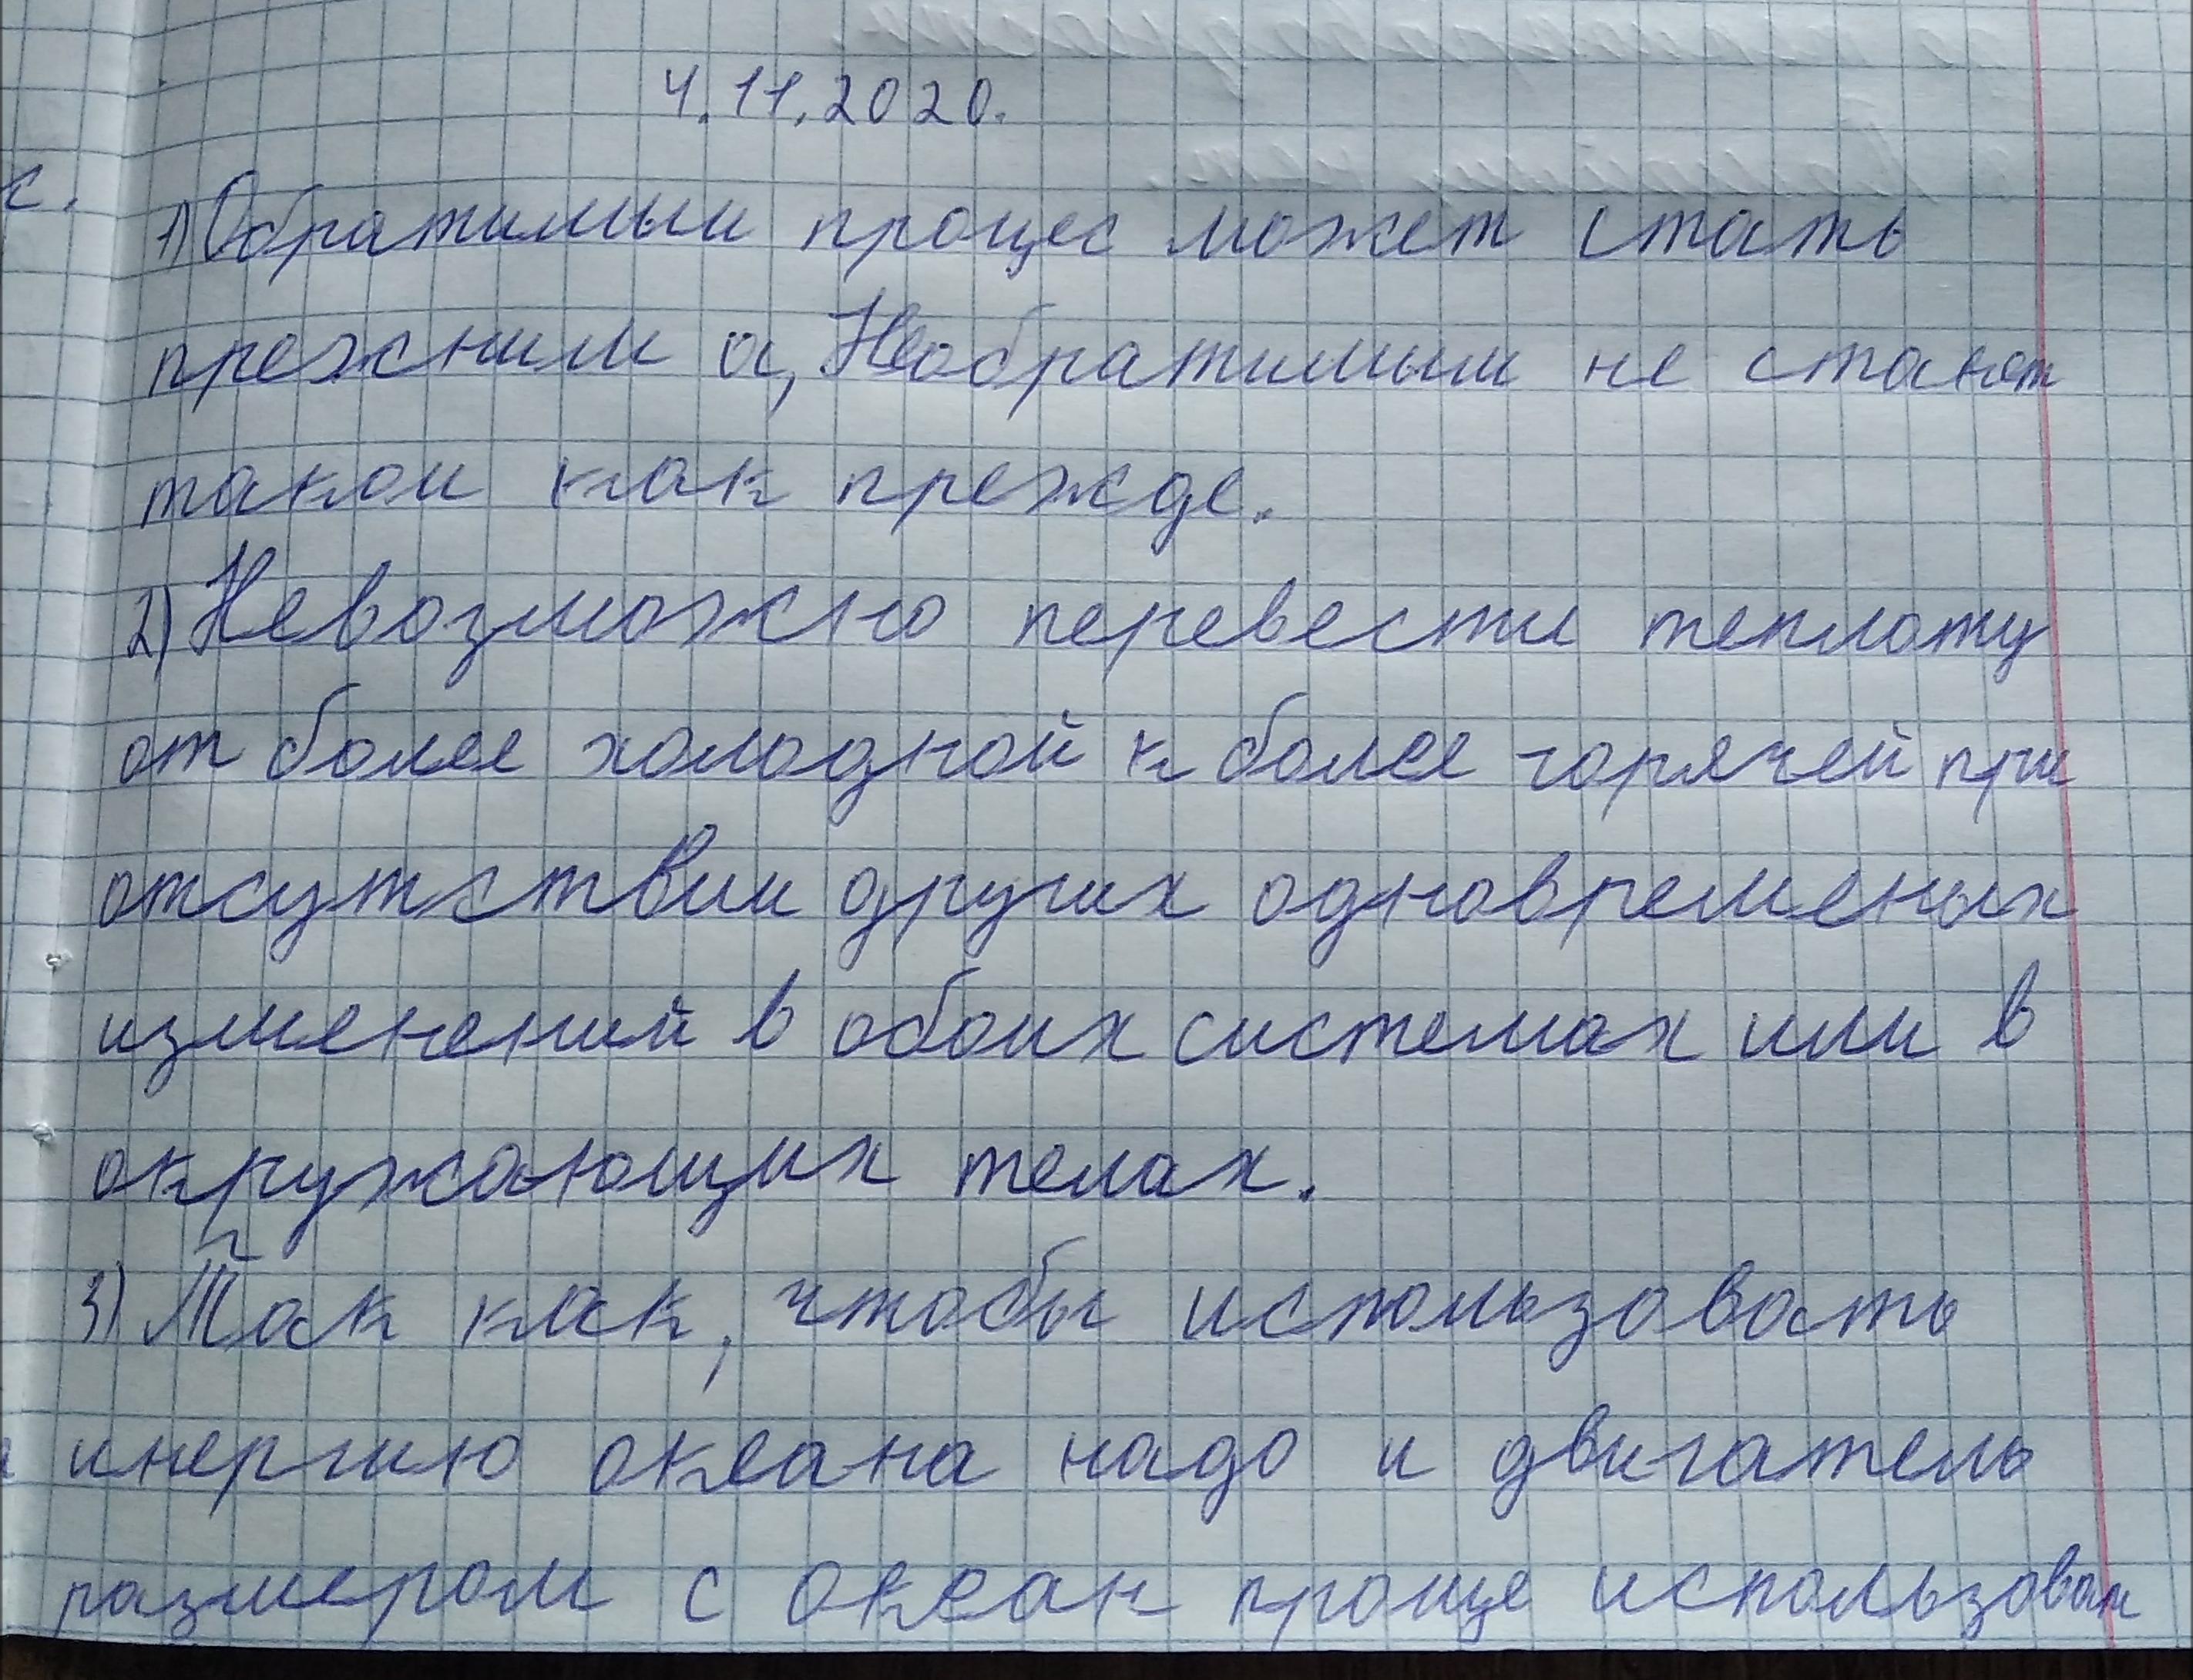 4.11.2020.
с.
1) Обратимыи процес может стать
прежним а, Необратимыи не станет
такои как прежде.
2) Невозможно перевести теплоту
от более холодной к более горячей при
отсутствии других одновременых
изменений в обоих системах или в
окружающих телах.
3) Так как, чтобы использовать
инергию океана надо и двигатель
размером с океан проще использоват